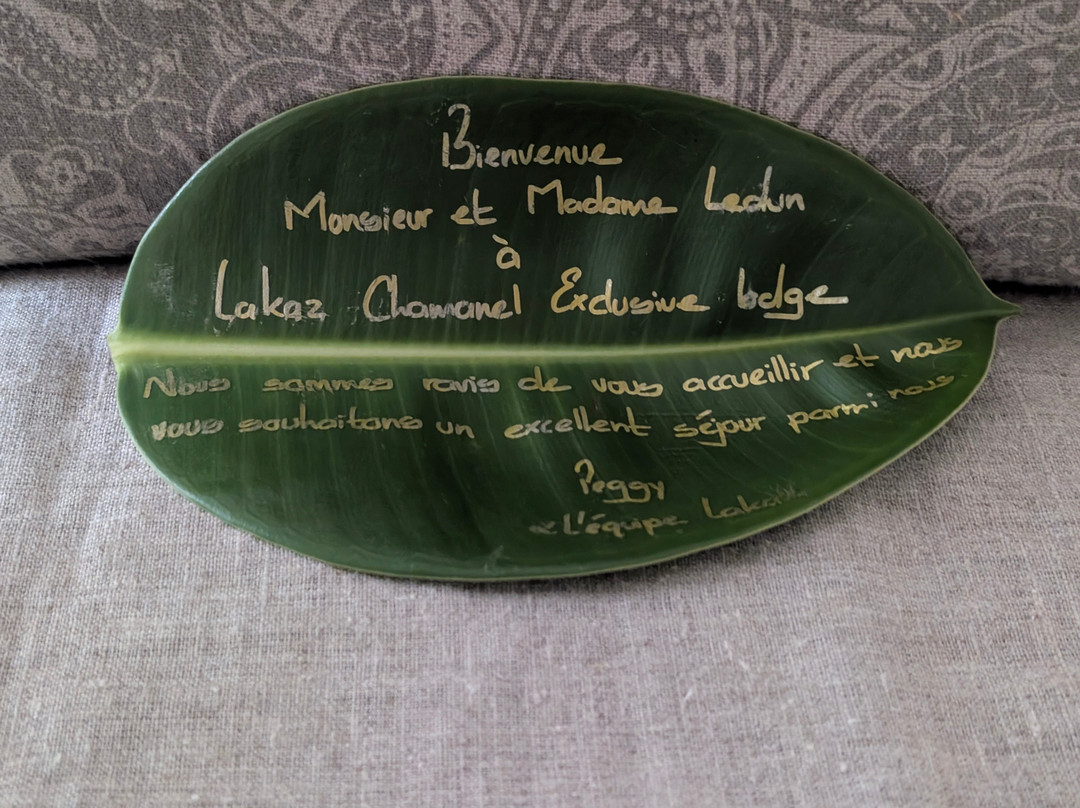 Bienvenue
Monsieur et Madame Ledun
à
Lakaz Chamarel Exclusive lodge
Nous sommes ravis de vous accueillir et nous
vous souhaitons un excellent séjour parmi nous.
Peggy
& L'équipe Lakaz